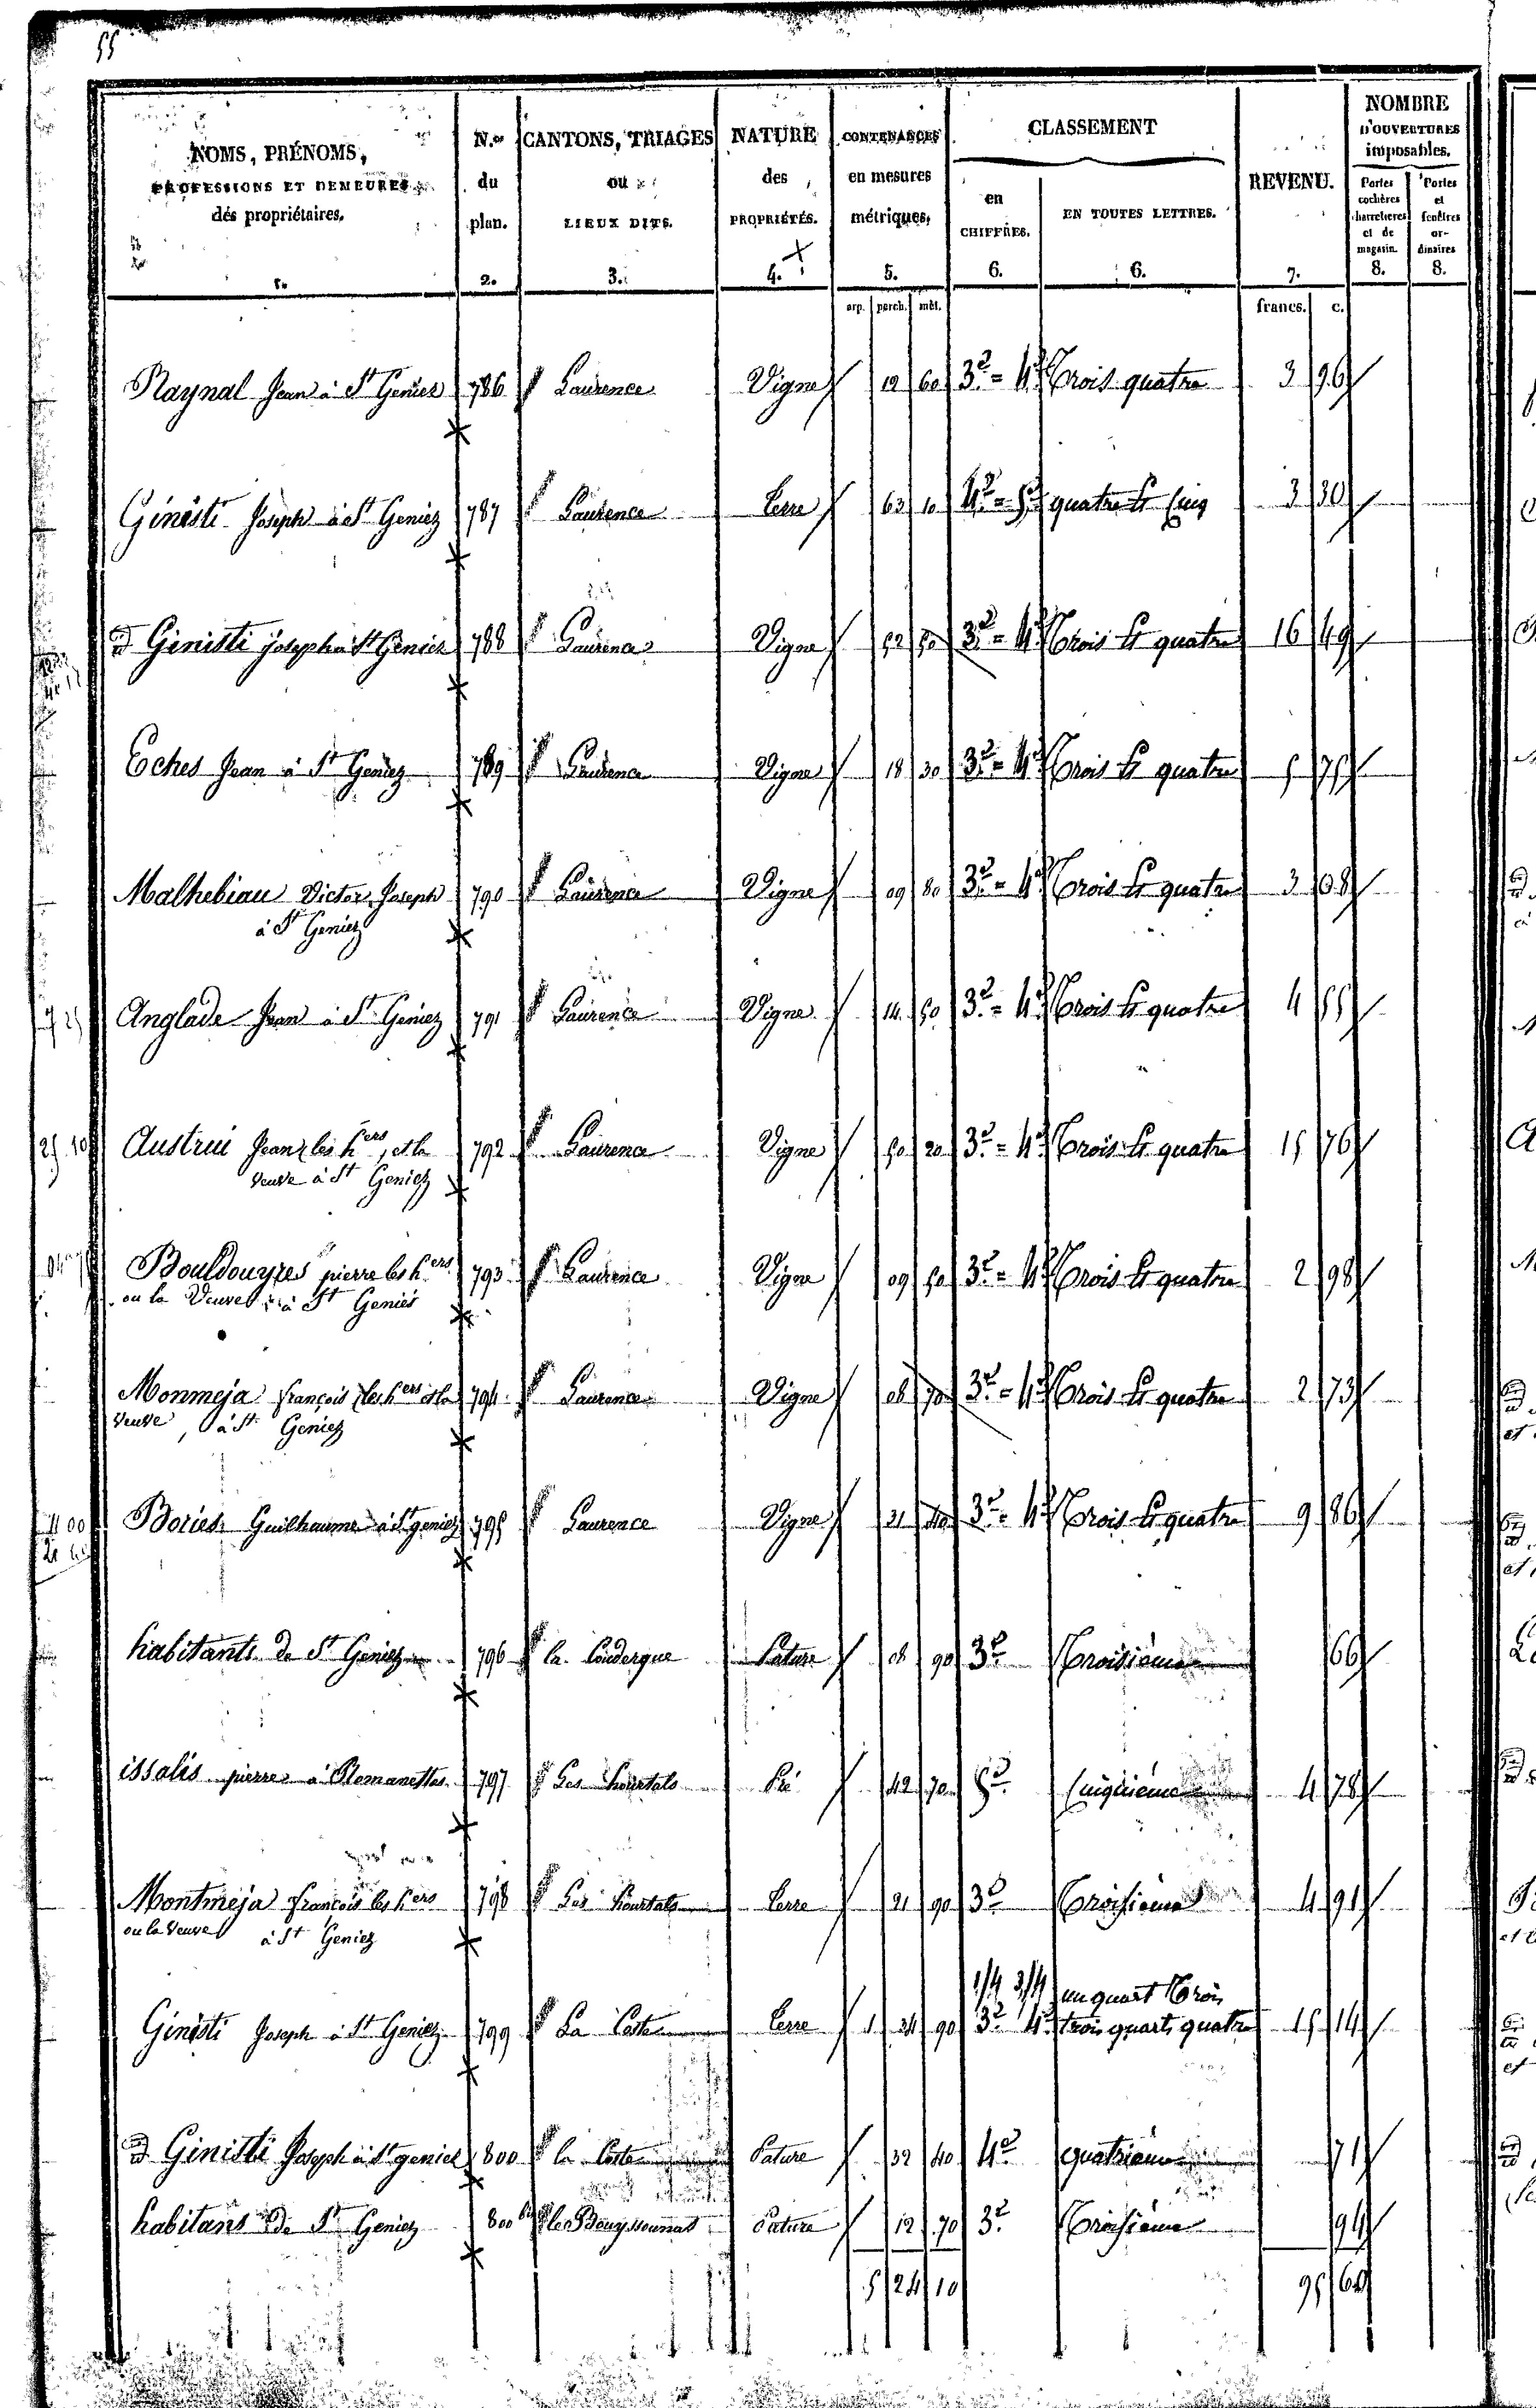 55
NOMS, PRÉNOMS, PROFESSIONS ET DEMEURES des propriétaires. 1.
N.os du plan. 2.
CANTONS, TRIAGES ou LIEUX DITS. 3.
NATURE des PROPRIÉTÉS. 4.
CONTENANCES en mesures métriques, 5.
CLASSEMENT
en CHIFFRES. 6.
EN TOUTES LETTRES. 6.
REVENU. 7.
NOMBRE D'OUVERTURES imposables.
Portes cochères charretières et de magasin. 8.
Portes et fenêtres ordinaires 8.
arp. perch. mèt. francs. c.
Raynal Jean à St Geniez 786 Laurence Vigne 12 60 3e = 4e Trois quatre 3 96
Ginisti Joseph à St Geniez 787 Laurence Terre 63 10 4e = 5e quatre et Cinq 3 30
d Ginisti joseph à St Geniez 788 Laurence Vigne 52 50 3e = 4e Trois et quatre 16 49
Coches Jean à St Geniez 789 Laurence Vigne 18 30 3e = 4e Trois et quatre 5 75
Malhebiau Victor Joseph 790 Laurence Vigne 09 80 3e = 4e Trois et quatre 3 08
à St Geniez
Anglade Jean à St Geniez 791 Laurence Vigne 14 50 3e = 4e Trois et quatre 4 55
Austrui Jean les hers, et la 792 Laurence Vigne 50 20 3e = 4e Trois et quatre 15 76
veuve à St Geniez
Bouldouyres pierre les hers 793 Laurence Vigne 09 50 3e = 4e Trois et quatre 2 98
ou la Veuve à St Geniés
Monmeja françois les hers et la 794 Laurence Vigne 08 70 3e = 4e Trois et quatre 2 73
veuve, à St Geniez
Bories Guilhaume à St geniez 795 Laurence Vigne 31 40 3e = 4e Trois et quatre 9 86
habitants de St Geniez 796 la Couderque Pature 08 90 3e Troisieme 66
issalis pierre à 797 Les hourtals Pré 42 70 5e Cinquieme 4 78
Montmeja francois les hers 798 Les hourtals Terre 21 90 3e Troisieme 4 91
ou la Veuve à St Geniez
1/4 3/4 un quart Trois
Ginisti Joseph à St Geniez 799 La Coste Terre 1 34 90 3e 4e trois quarts quatre 15 14
d Ginisti Joseph à St geniez 800 la Coste Pature 32 40 4e quatrieme 71
habitans de St Geniez 800 Pature 12 70 3e Troisieme 94
5 24 10 95 60